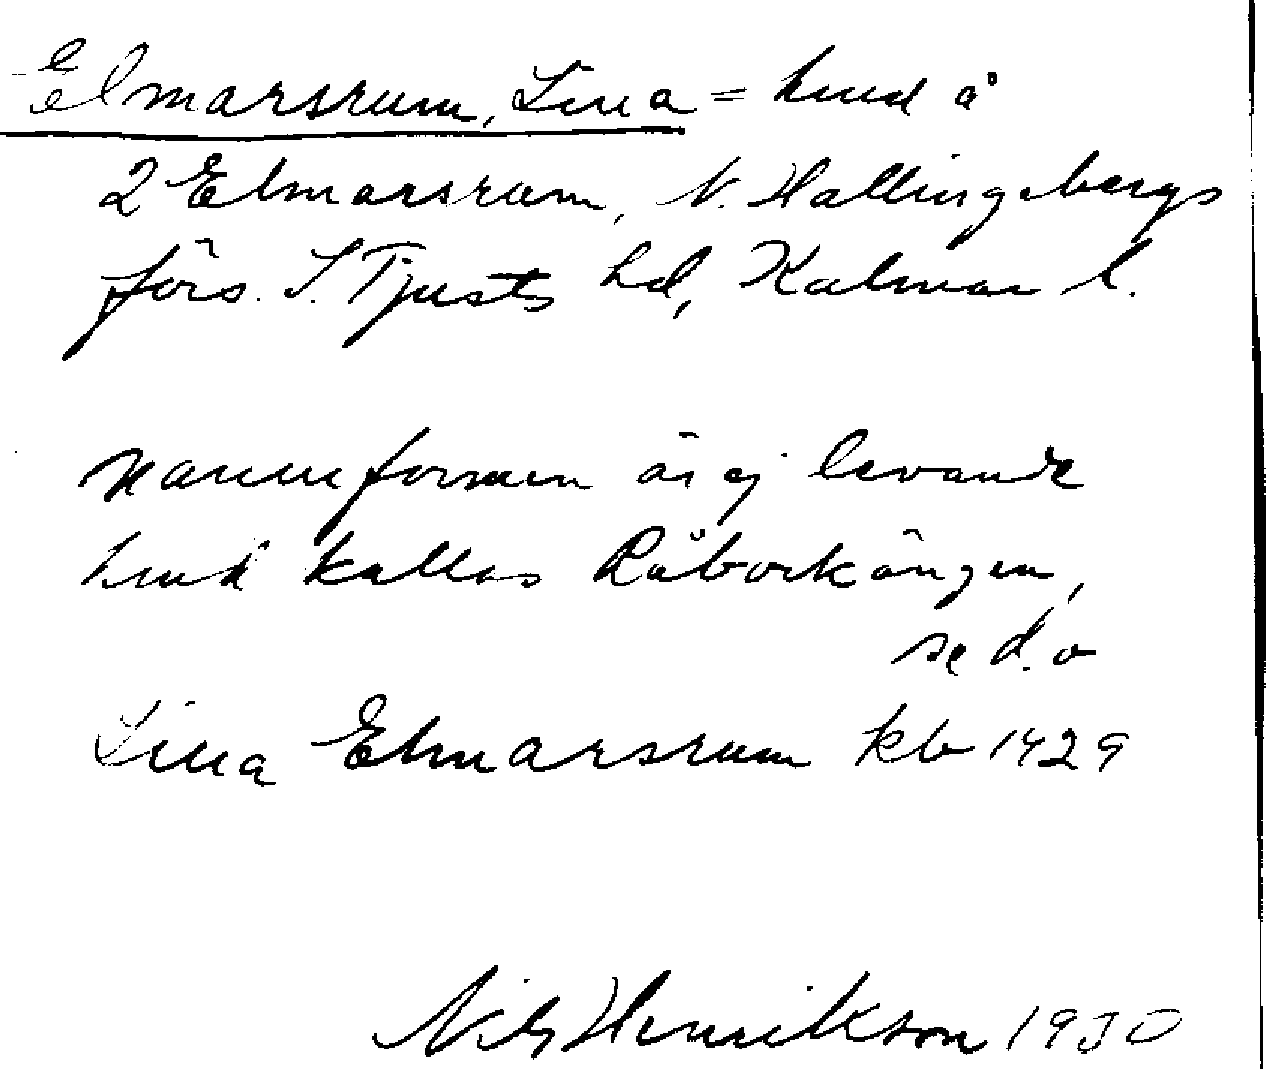 Elmarsrum, Lina = lind å
2 Elmarsrum, N. Hallingebergs
förs. S. Tjusts hd, Kalmar l.
Namnformen är ej levande
kallas Råbockängen,
se d.o
Lina Elmarsrum kb 1429
Nils Henrikson 1930